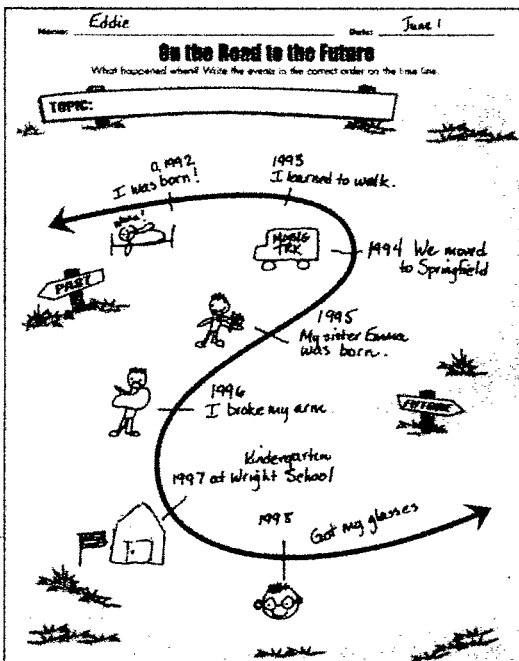 Name: Eddie Date: June 1
On the Road to the Future
What happened when? Write the events in the correct order on the time line.
TOPIC:
1992
I was born!
1993
I learned to walk.
MOVING
TRK
1994 We moved
to Springfield
PAST
1995
My sister Emma
was born.
1996
I broke my arm
FUTURE
Kindergarten
1997 at Wright School
1998
Got my glasses